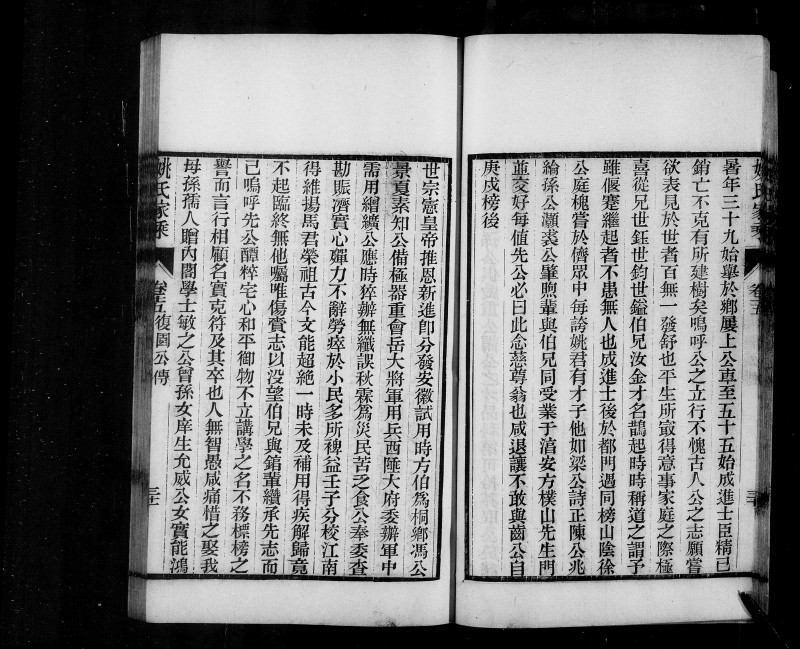 姚氏家乘
卷五
暑年三十九始舉於鄉屢上公車至五十五始成進士臣精已
銷亡不克有所建樹矣嗚呼公之立行不愧古人公之志願嘗
欲表見於世者百無一發舒也平生所最得意事家庭之際極
喜從兄世鈺世鈞世鎰伯兄汝金才名鵲起時時稱道之謂予
雖偃蹇繼起者不患無人也成進士後於都門遇同榜山陰徐
公庭槐嘗於儕眾中每誇姚君有才子他如梁公詩正陳公兆
崙孫公灝裘公肇煦輩與伯兄同受業于淯安方樸山先生門
並交好每值先公必曰此念慈尊翁也咸退讓不敢與齒公自
庚戌榜後
世宗憲皇帝推恩新進即分發安徽試用時方伯為桐鄉馮公
景夏素知公備極器重會岳大將軍用兵西陲大府委辦軍中
需用繒纊公應時猝辦無纖誤秋霖為災民苦乏食公奉委查
勘賑濟實心彈力不辭勞瘁於小民多所裨益壬子分校江南
得維揚馬君榮祖古今文能超絕一時未及補用得疾解歸竟
不起臨終無他囑唯傷賫志以沒望伯兄與銷輩纘承先志而
已嗚呼先公醰粹宅心和平御物不立講學之名不務標榜之
譽而言行相顧名實克符及其卒也人無智愚咸痛惜之娶我
母孫孺人贈內閣學士敏之公曾孫女庠生允咸公女實能鴻
姚氏家乘
卷五復園公傳